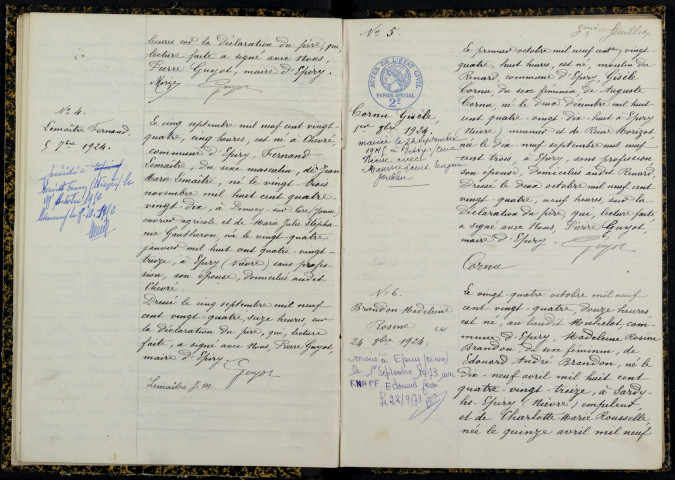 heures sur la déclaration du père, qui,
lecture faite a signé avec Nous,
Pierre Guyot, maire d'Epiry.
Guyot
No 4.
Lemaître Fernand
5 7bre 1924.
Le cinq septembre mil neuf cent vingt-
quatre, cinq heures, est né à Chevré,
commune d'Epiry, Fernand
Lemaître, du sexe masculin, de Jean
Marie Lemaître, né le vingt trois
novembre mil huit cent quatre
vingt dix, à (Yonne)
ouvrier agricole et de Marie Julie Stépha
nie Gautheron, née le vingt-quatre
janvier mil huit cent quatre-vingt-
treize, à Epiry (Nièvre) sans profes-
sion, son épouse, domiciliés audit
Chevré
Dressé le cinq septembre mil neuf
cent vingt-quatre, seize heures sur
la déclaration du père, qui, lecture
faite, a signé avec Nous, Pierre Guyot,
maire d'Epiry.
Guyot
Lemaître J. M.
No 5.
ACTES DE L'ÉTAT CIVIL
PAPIER SPÉCIAL
2F
Cornu Gisèle,
1er 8bre 1924.
mariée le 22 septembre
1945 à
Nièvre avec
Maurice Louis
Le premier octobre mil neuf cent vingt-
quatre, huit heures, est né, moulin du
Renard, commune d'Epiry, Gisèle
Cornu du sexe féminin de Auguste
Cornu, né le deux décembre mil huit
cent quatre-vingt-dix à Epiry
(Nièvre) meunier et de René Morizot
née le dix-neuf septembre mil neuf
cent trois, à Epiry, sans profession
son épouse, domiciliés audit Renard.
Dressé le deux octobre mil neuf cent
vingt-quatre, neuf heures, sur la
déclaration du père qui, lecture faite
a signé avec Nous, Pierre Guyot,
maire d'Epiry.
Guyot
Cornu
No 6.
Brandon Madeleine
Rosine
24 8bre 1924.
Mariée à Epiry (Nièvre)
le 1er Septembre 1973 avec
KNAPF Edouard
Le 28/9/73
Le vingt-quatre octobre mil neuf
cent vingt-quatre, douze heures,
est né, au lieudit Machelot, com-
mune d'Epiry, Madeleine Rosine
Brandon du sexe féminin, de
Edouard André Brandon, né le
dix-neuf avril mil huit cent
quatre-vingt-treize, à Sardy-
les-Epiry (Nièvre) employé
et de Charlotte Marie Rousselle
née le quinze avril mil neuf